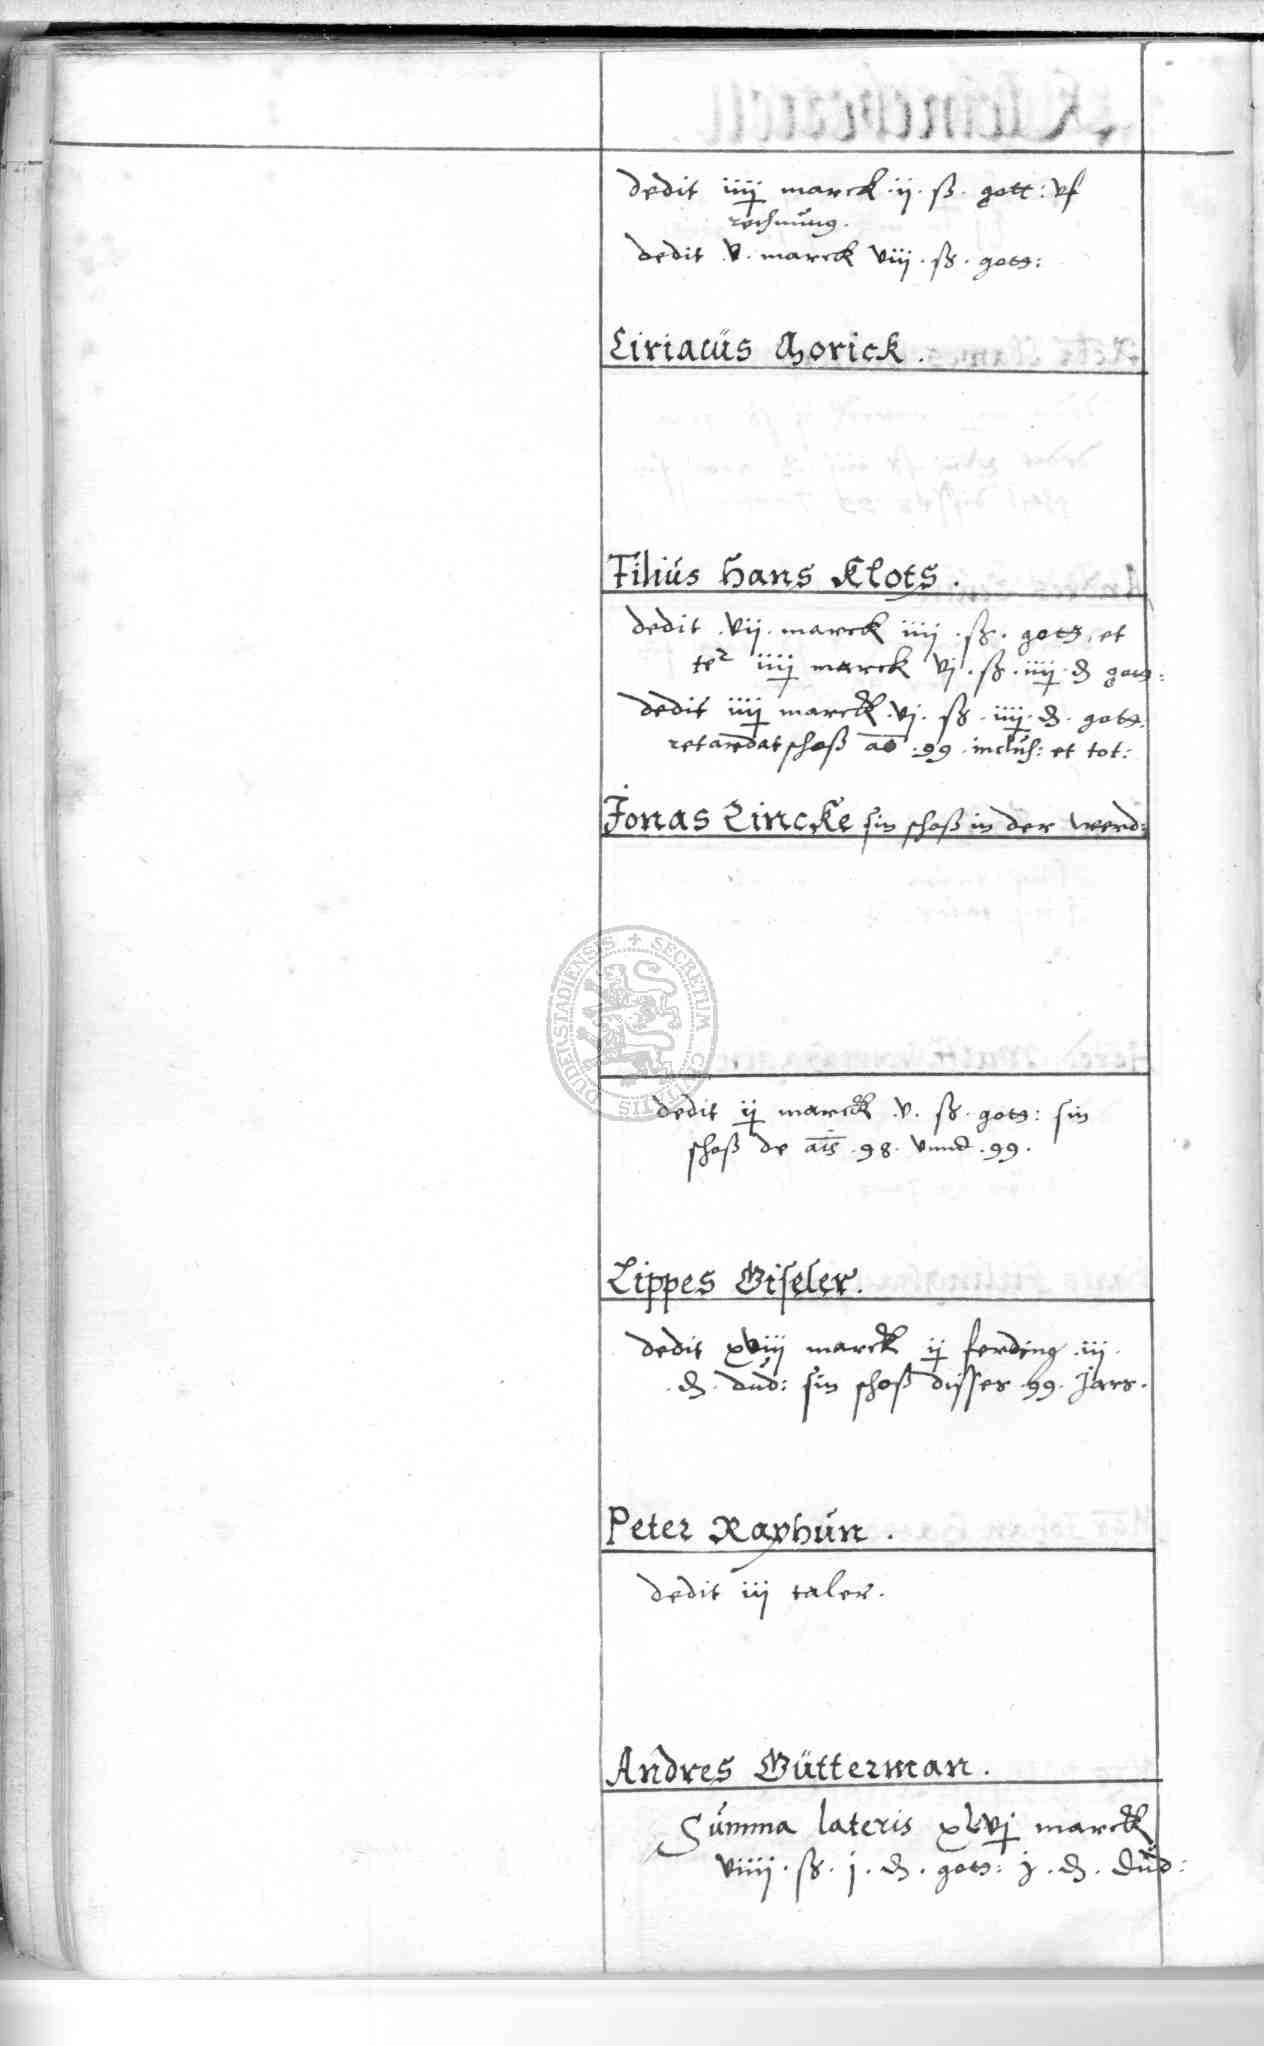 dedit iiij marck .ij. ß. gott: vf
rechnung.
dedit .v. marck viij .ß. gots:
Ciriacus Horick.
Filiús Hans Klots.
dedit .vij. marck iiij .ß. gots, et
iiij marck vj .ß. iiij .d. gots:
dedit iiij marck .vj. ß. iiij .d. gots.
retardat schoß ao .99. inclus: et tot:
Jonas Lincke sin schoß in der werd:
dedit ij marck .v. ß. gots: sin
schoß de ais .98. vnnd .99.
Lippes Giseler.
dedit xviij marck ij ferding .iij.
.d. dúd: sin schoß disses .99. jars.
Peter Raphún.
dedit iij taler.
Andres Gütterman.
Súmma lateris xlvj marck
viiij .ß. j .d. gots: j .d. dúd:
SECRETUM CIVITATIS DUDERSTADIENSIS